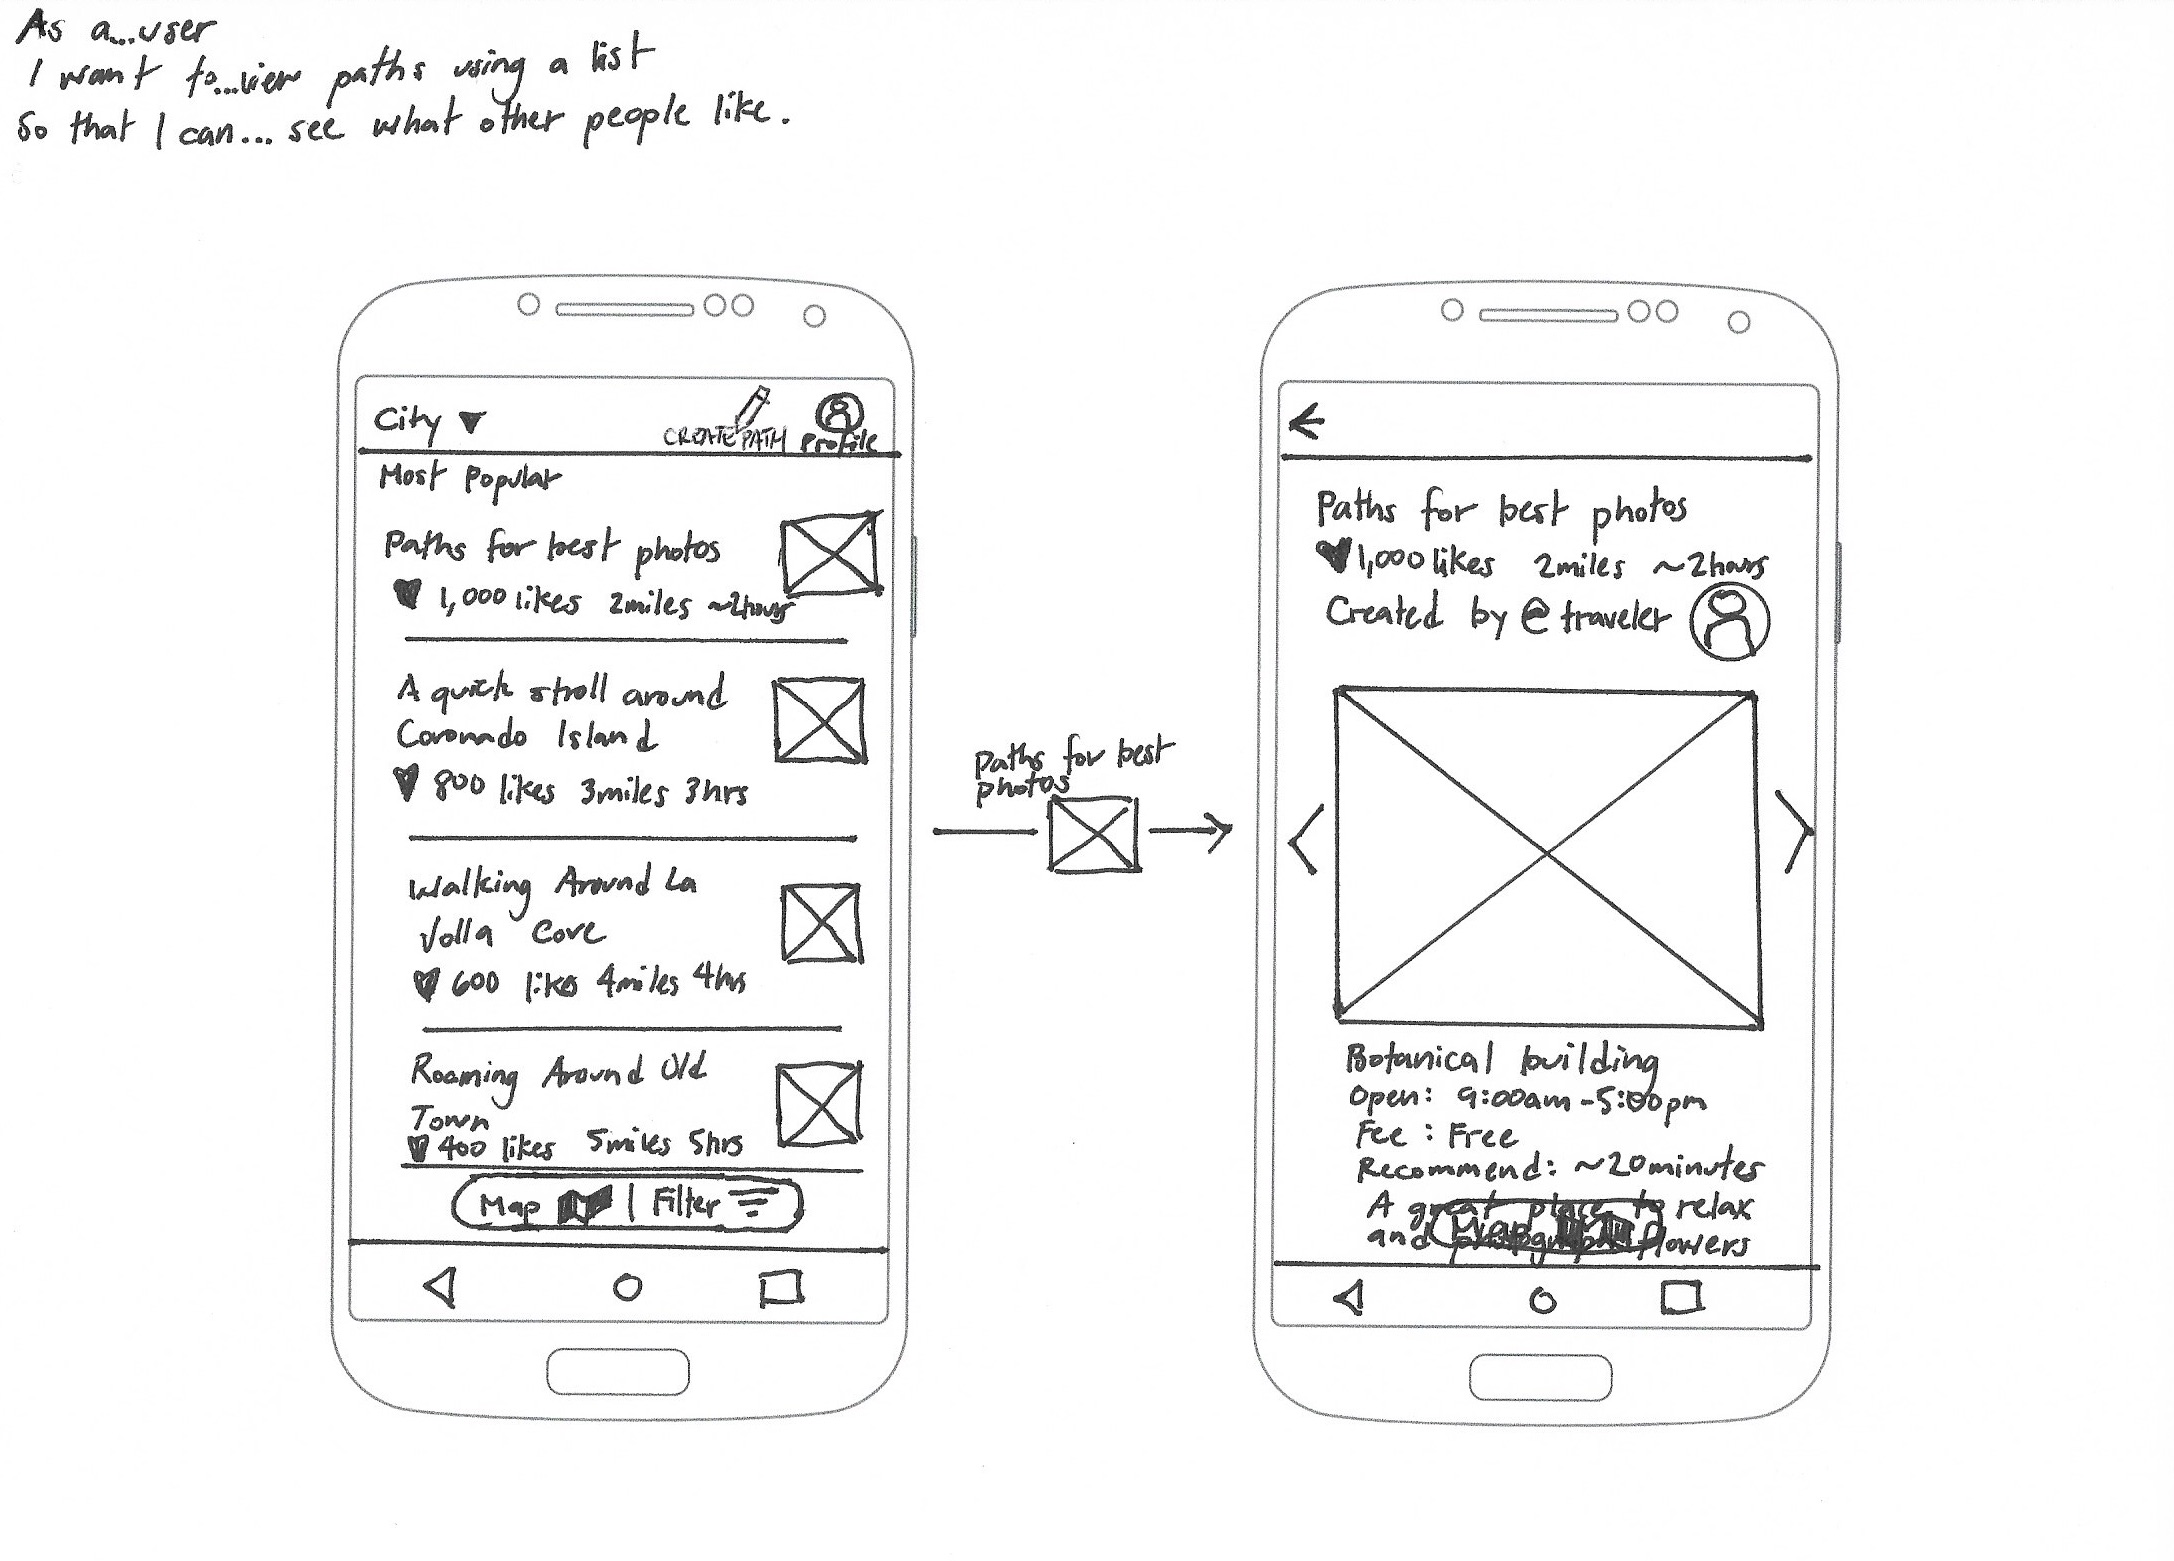 As a...user
I want to...view paths using a list
So that I can... see what other people like.
City
CREATE PATH
Profile
Most Popular
Paths for best photos
1,000 likes 2miles ~2hours
A quick stroll around
Coronado Island
800 likes 3miles 3hrs
Walking Around La
Jolla Cove
600 likes 4miles 4hrs
Roaming Around Old
Town
400 likes 5miles 5hrs
Map | Filter
Paths for best
photos
Paths for best photos
1,000 likes 2miles ~2hours
Created by @traveler
Botanical building
Open: 9:00am-5:00pm
Fee: Free
Recommend: ~20minutes
A great place to relax
and photograph flowers
Map